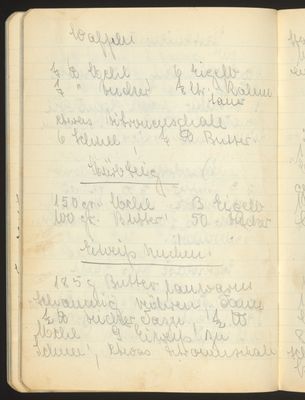 Waffeln
½ ℔ Mehl 6 Eigelb
¼ " Zucker ½ Ltr. Rahm
sauer
etwas Zitronenschale
6 Schnee, ½ ℔ Butter
Mürbteig
150 gr. Mehl 3 Eigelb
100 gr. Butter 50 Zucker
Eiweiß Kuchen
185 g Butter
schaumig rühren, dann
½ ℔ Zucker dazu, ½ ℔
Mehl 9 Eiweiß zu
Schnee, etwas Zitronenschale